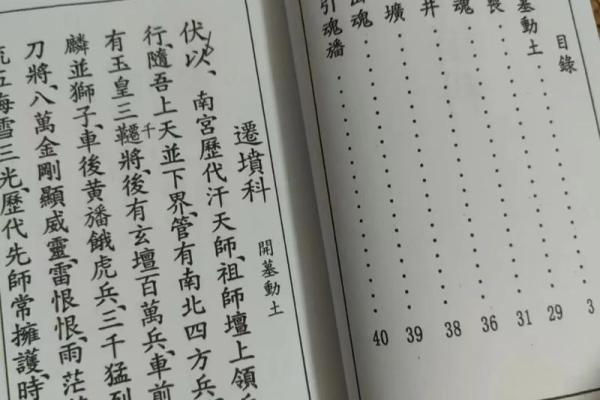 目錄
墓動土 3
29
魂 31
井 36
壙 38
魂 39
引魂旛 40
遷墳科 開墓動土
伏以、南宮歷代汗天師、祖師壇上領
行、隨吾上天並下界、管有南北四方兵
有玉皇三韆將、後有玄壇百萬兵、車前
千
麟並獅子、車後黃旛餓虎兵、三千猛烈
刀將、八萬金剛顯威靈、雷恨恨、雨茫
五海雪三光、歷代先師常擁護、時